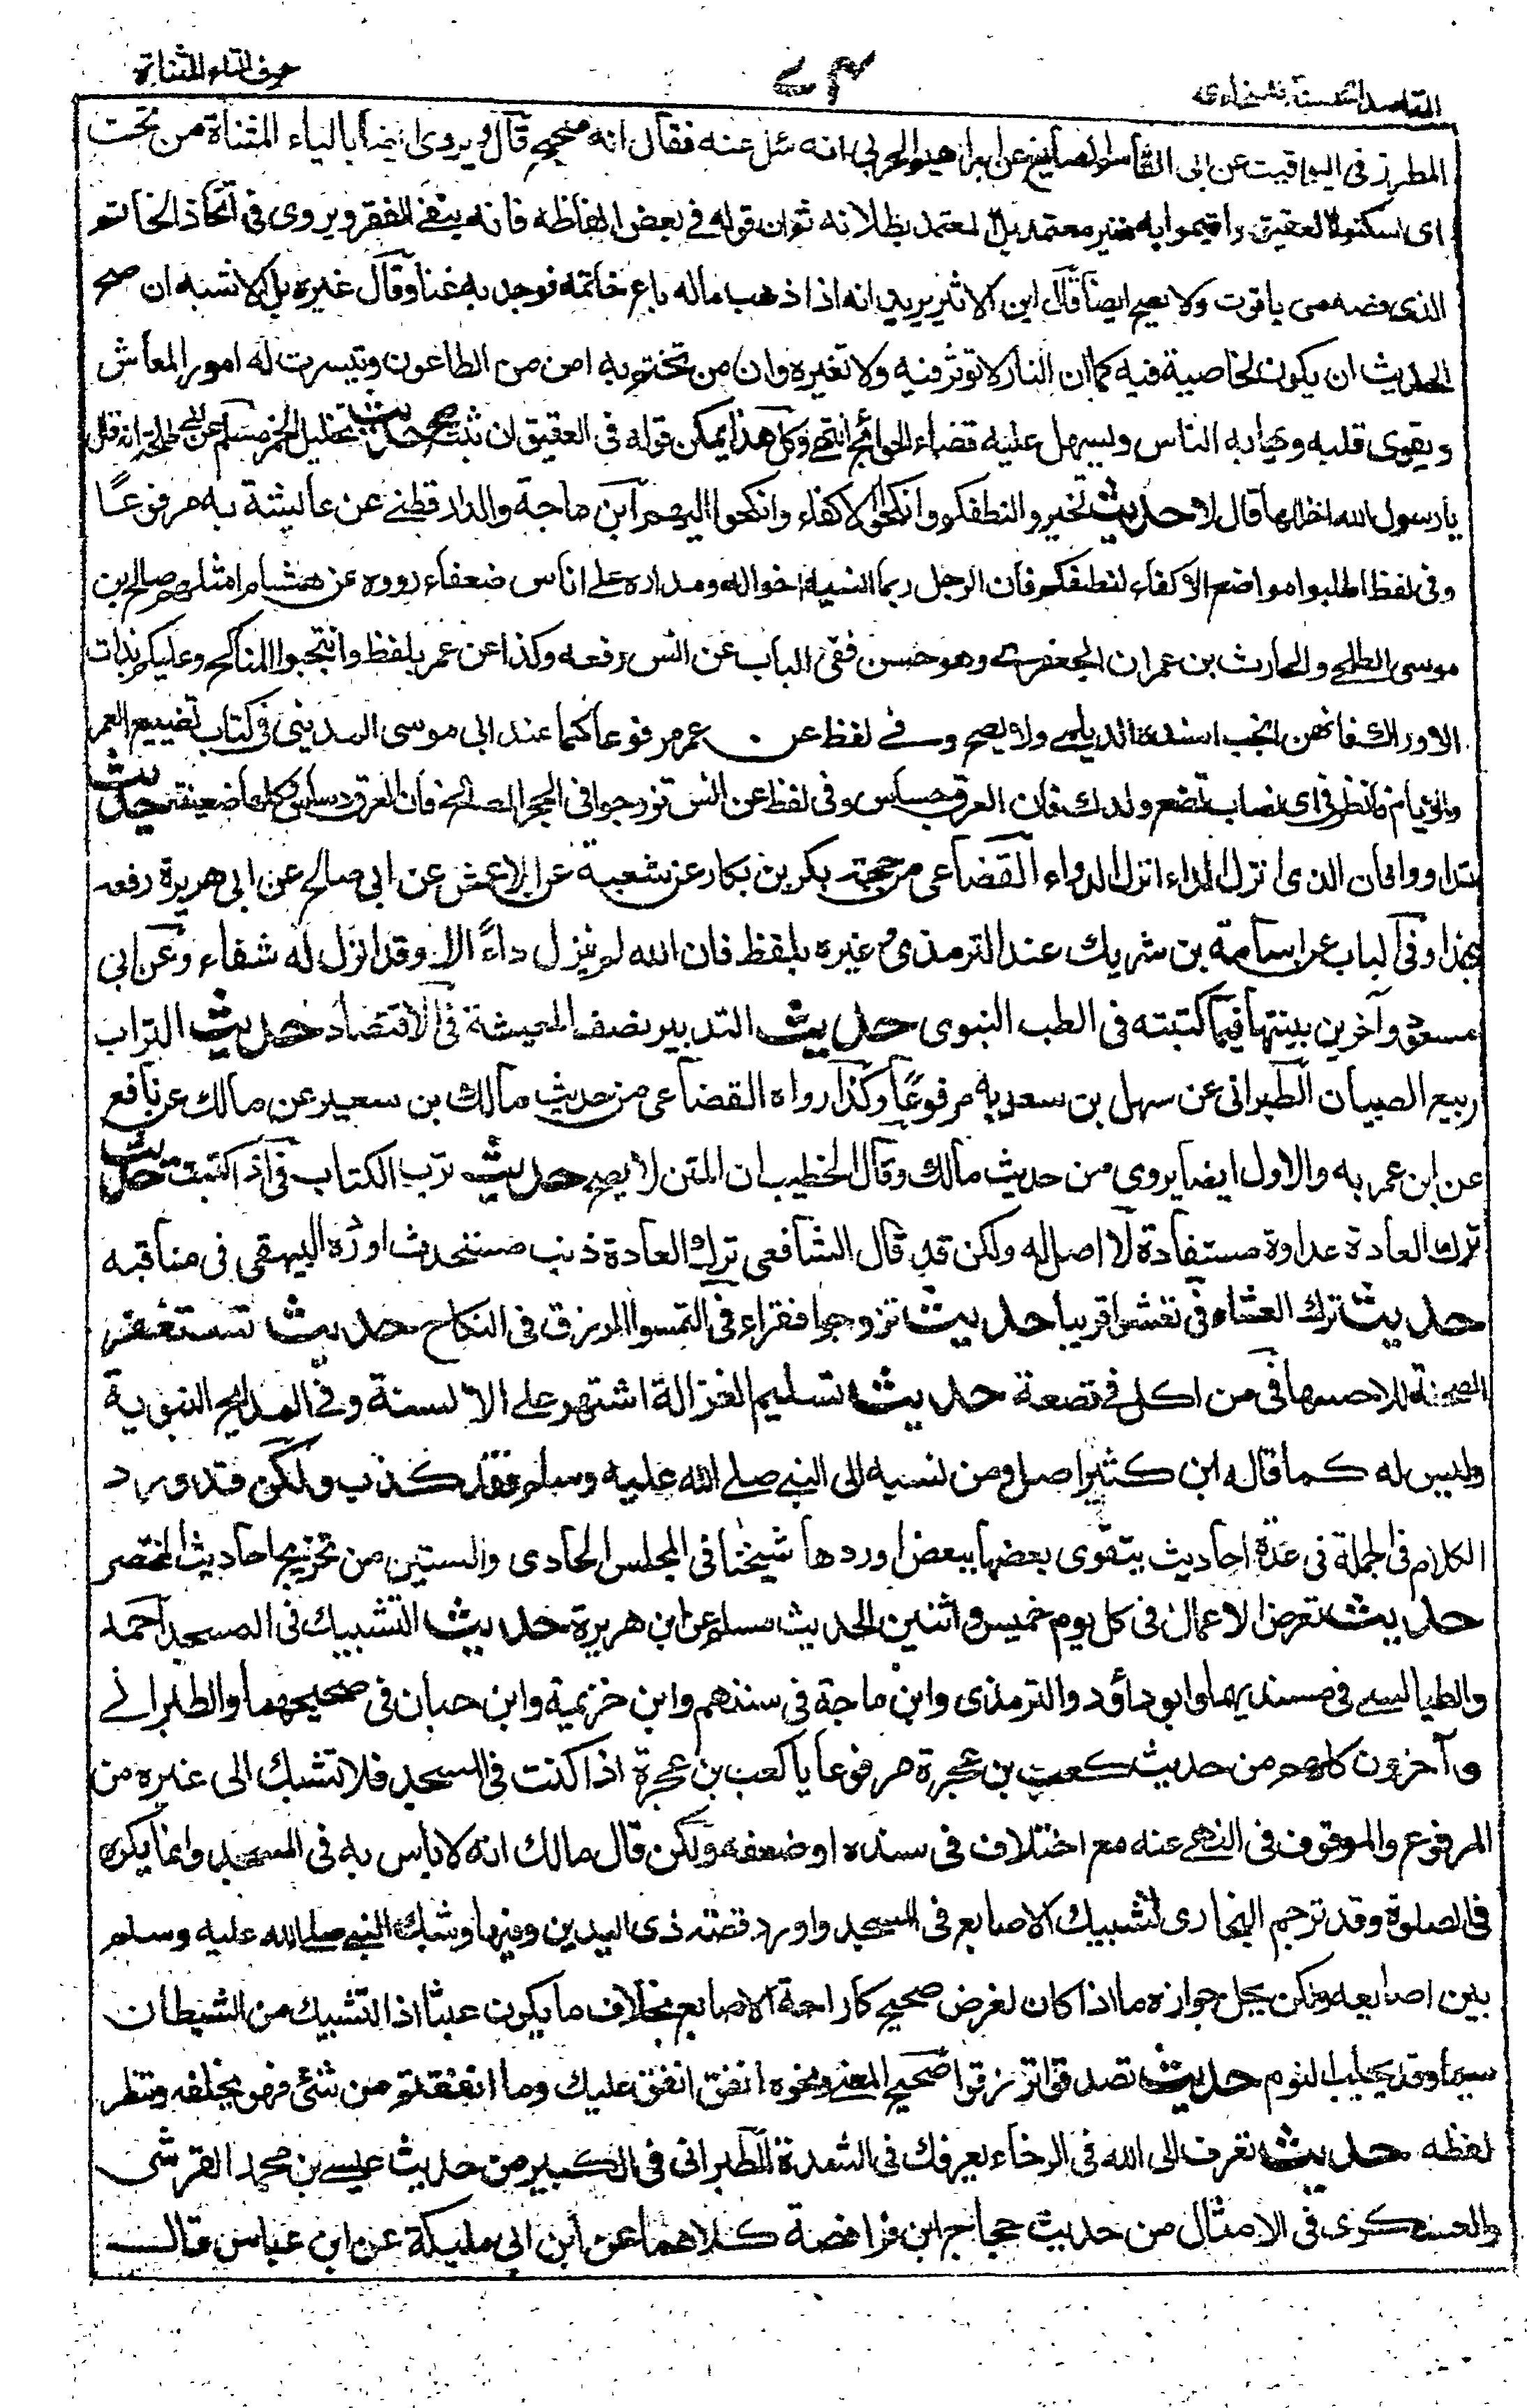 المقاصد الحسنة للسخاوى
٧٣
حرف التاء المثناة
المطرز فى اليواقيت عن ابى القاسم الصايغ عن ابراهيم الحربى انه سئل عنه فقال انه صحيح قال ويروى ايضا بالياء المثناة من تحت
اى اسكنوا العقيق واقيموا به غير معتمد بل المعتمد بطلانه ثم ان قوله فى بعض الفاظه فانه ينفى الفقر ويروى فى اتخاذ الخاتم
الذى فصه من ياقوت ولا يصح ايضا قال ابن الاثير يريد انه اذا ذهب ماله باع خاتمه فوجد به غنا وقال غيره بل الاشبه ان صح
الحديث ان يكون لخاصية فيه كما ان النار لا توثر فيه ولا تغيره وان من تختم به امن من الطاعون وتيسرت له امور المعاش
ويقوى قلبه ويهابه الناس ويسهل عليه قضاء الحوائج انتهى وكل هذا يمكن قوله فى العقيق ان ثبت حديث تخليل الخمر مسلم عن ابى طلحة انه قال
يا رسول الله اخللها قال لا حديث تخيروا لنطفكم وانكحوا الاكفاء وانكحوا اليهم ابن ماجة والدارقطنى عن عايشة به مرفوعًا
وفى لفظ اطلبوا مواضع الاكفاء لنطفكم فان الرجل ربما اشبه اخواله ومداره على اناس ضعفاء رووه عن هشام امثلهم صالح بن
موسى الطلحى والحارث بن عمران الجعفرى وهو حسن ففى الباب عن انس رفعه وكذا عن عمر بلفظ وانتجبوا المناكح وعليكم بذات
الاوراك فانهن انجب اسنده الديلمى ولا يصح وفى لفظ عن عمر مرفوعا كما عند ابى موسى المدينى فى كتاب تضييع العمر
والايام وانظر فى اى نصاب تضع ولدك فان العرق دساس وفى لفظ عن انس تزوجوا فى الحجر الصالح فان العرق دساس وكلها ضعيفة حديث
تداووا فان الذى انزل الداء انزل الدواء القضاعى من جهة بكر بن بكار عن شعبة عن الاعمش عن ابى صالح عن ابى هريرة رفعه
بهذا وفى الباب عن اسامة بن شريك عند الترمذى وغيره بلفظ فان الله لم ينزل داءً الا وقد انزل له شفاء وعن ابى
مسعود وآخرين بينتها فيما كتبته فى الطب النبوى حديث التدبير نصف المعيشة فى الاقتصاد حديث التراب
ربيع الصبيان الطبرانى عن سهل بن سعد به مرفوعًا وكذا رواه القضاعى من حديث مالك بن سعير عن مالك عن نافع
عن ابن عمر به والاول ايضا يروى من حديث مالك وقال الخطيب ان المتن لا يصح حديث ترب الكتاب فى اذا كتبت حديث
ترك العادة عداوة مستفادة لا اصل له ولكن قد قال الشافعى ترك العادة ذنب مستحدث اورده البيهقى فى مناقبه
حديث ترك العشاء فى تعشوا قريبا حديث تزوجوا فقراء فى التمسوا الرزق فى النكاح حديث تستغفر
الصحفة للاحسها فى من اكل فى قصعة حديث تسليم الغزالة اشتهر على الالسنة وفى المدايح النبوية
وليس له كما قاله ابن كثير اصل ومن نسبه الى النبى صلى الله عليه وسلم فقد كذب ولكن قد ورد
الكلام فى الجملة فى عدة احاديث يتقوى بعضها ببعض اوردها شيخنا فى المجلس الحادى والستين من تخريج احاديث المختصر
حديث تعرض الاعمال فى كل يوم خميس واثنين الحديث مسلم عن ابى هريرة حديث التشبيك فى المسجد احمد
والطيالسى فى مسنديهما وابو داؤد والترمذى وابن ماجة فى سننهم وابن خزيمة وابن حبان فى صحيحهما والطبرانى
وآخرون كلهم من حديث كعب بن عجرة مرفوعا يا كعب بن عجرة اذا كنت فى المسجد فلا تشبك الى غيره من
المرفوع والموقوف فى النهى عنه مع اختلاف فى سنده او ضعفه ولكن قال مالك انه لا باس به فى المسجد وانما يكره
فى الصلوة وقد ترجم البخارى لتشبيك الاصابع فى المسجد واورد قصة ذى اليدين وفيها وشبك النبى صلى الله عليه وسلم
بين اصابعه ولكن يحل جوازه ما اذا كان لغرض صحيح كاراحة الاصابع بخلاف ما يكون عبثا اذ التشبيك من الشيطان
سيما وقد يجلب النوم حديث تصدقوا ترزقوا صحيح المعنى ونحوه انفق انفق عليك وما انفقتم من شئ فهو يخلفه وينظر
لفظه حديث تعرف الى الله فى الرخاء يعرفك فى الشدة الطبرانى فى الكبير من حديث عيسى بن محمد القرشى
والعسكرى فى الامثال من حديث حجاج ابن فرافصة كلاهما عن ابن ابى مليكة عن ابن عباس قال